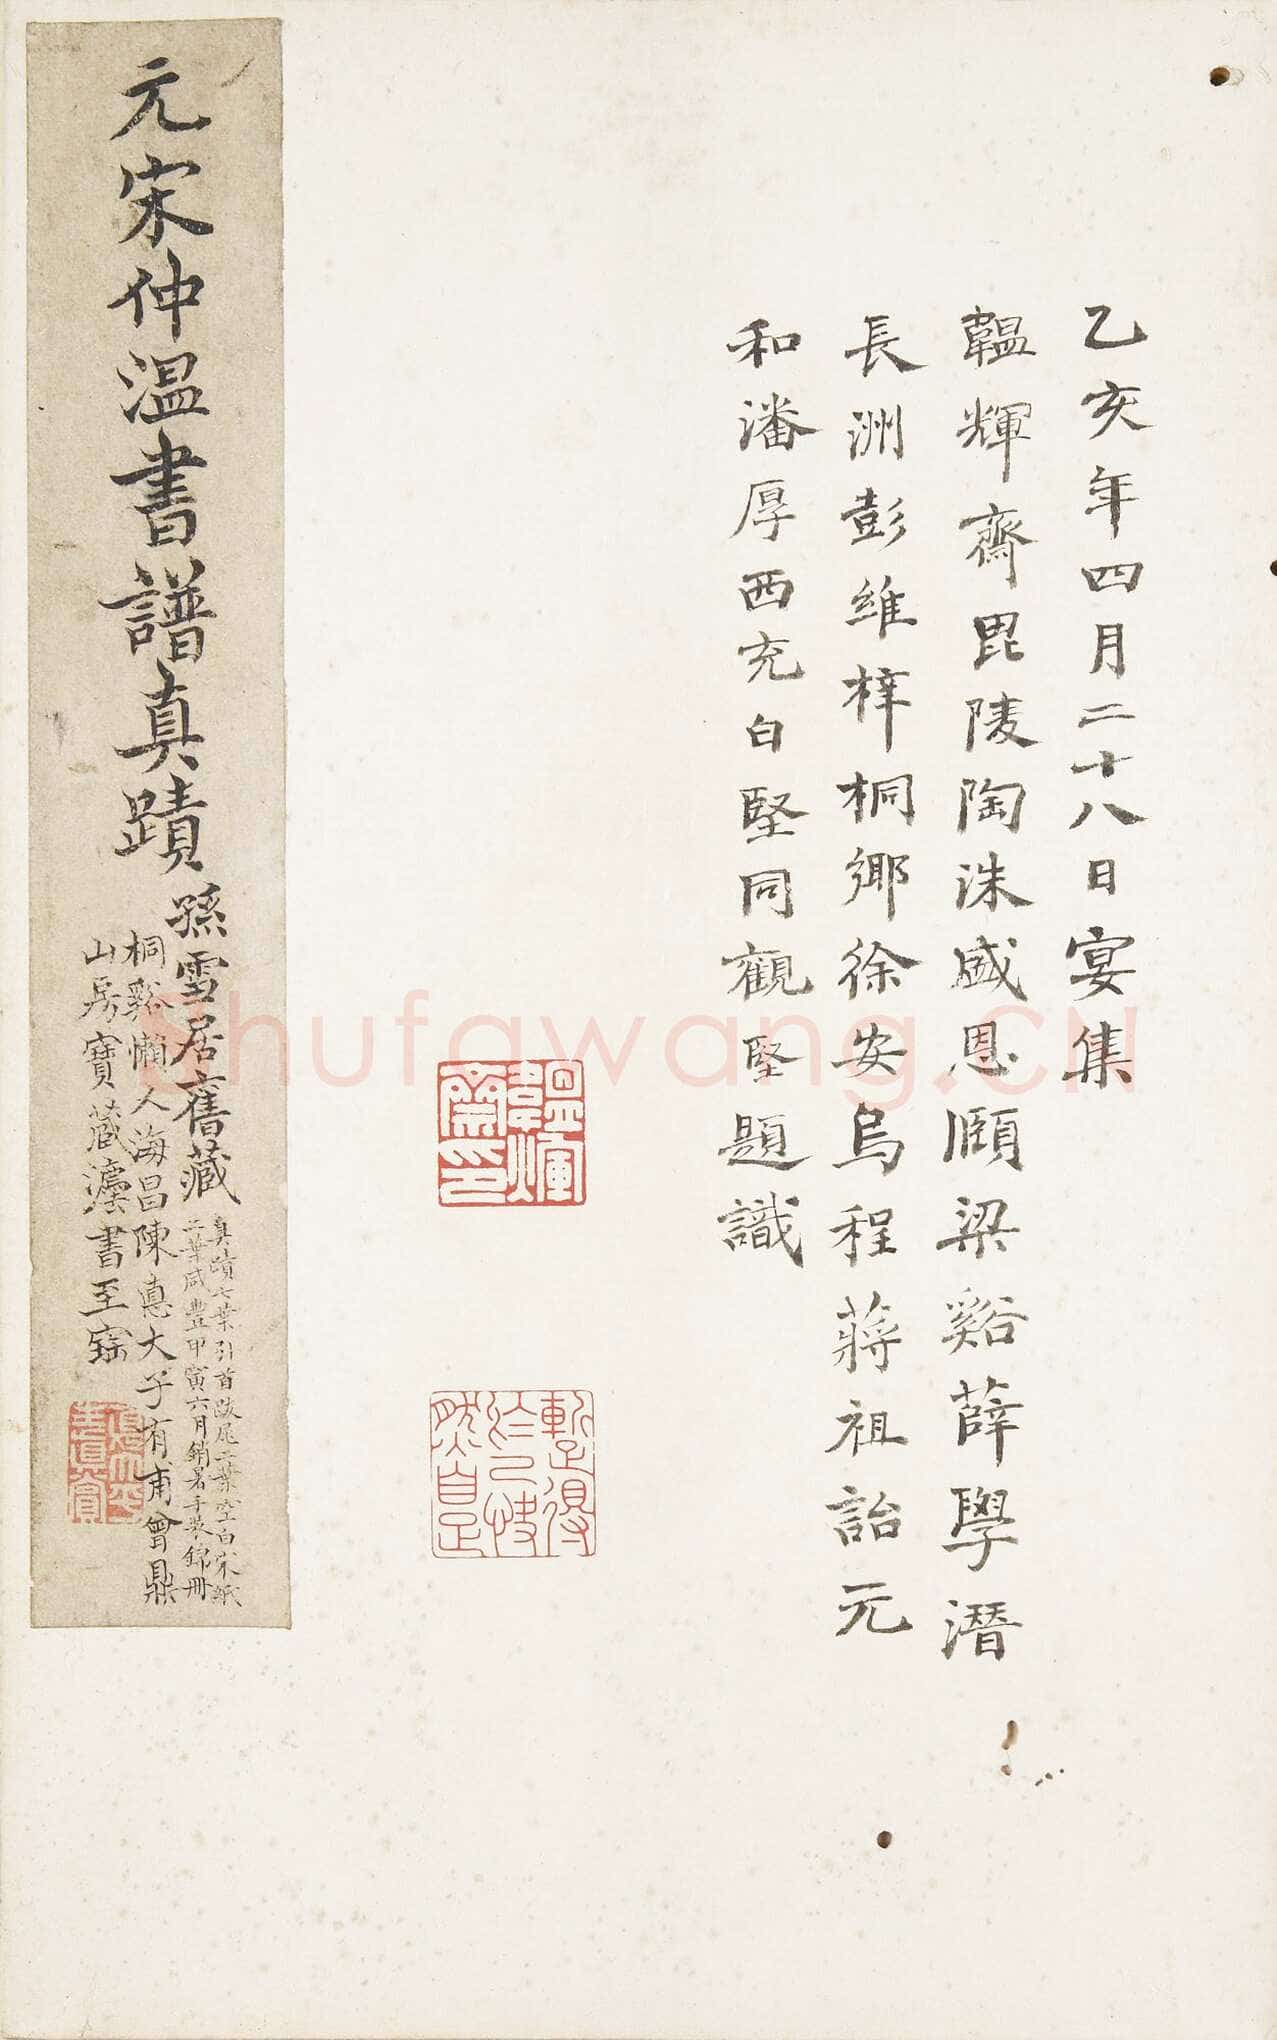 乙亥年四月二十八日宴集
韞輝齋毘陵陶洙盛恩頤梁谿薛學潛
長洲彭維梓桐鄉徐安烏程蔣祖詒元
和潘厚西充白堅同觀堅題識
韞輝齋印
暫得於己快然自足
元宋仲温書譜真蹟
孫雪居舊藏
真蹟七葉引首跋尾二葉空白宋紙
二葉咸豐甲寅六月銷暑手裝錦冊
桐谿懶人海昌陳惪大子有甫曾鼎
山房寶藏瀍書至寳
Shufawang.CN